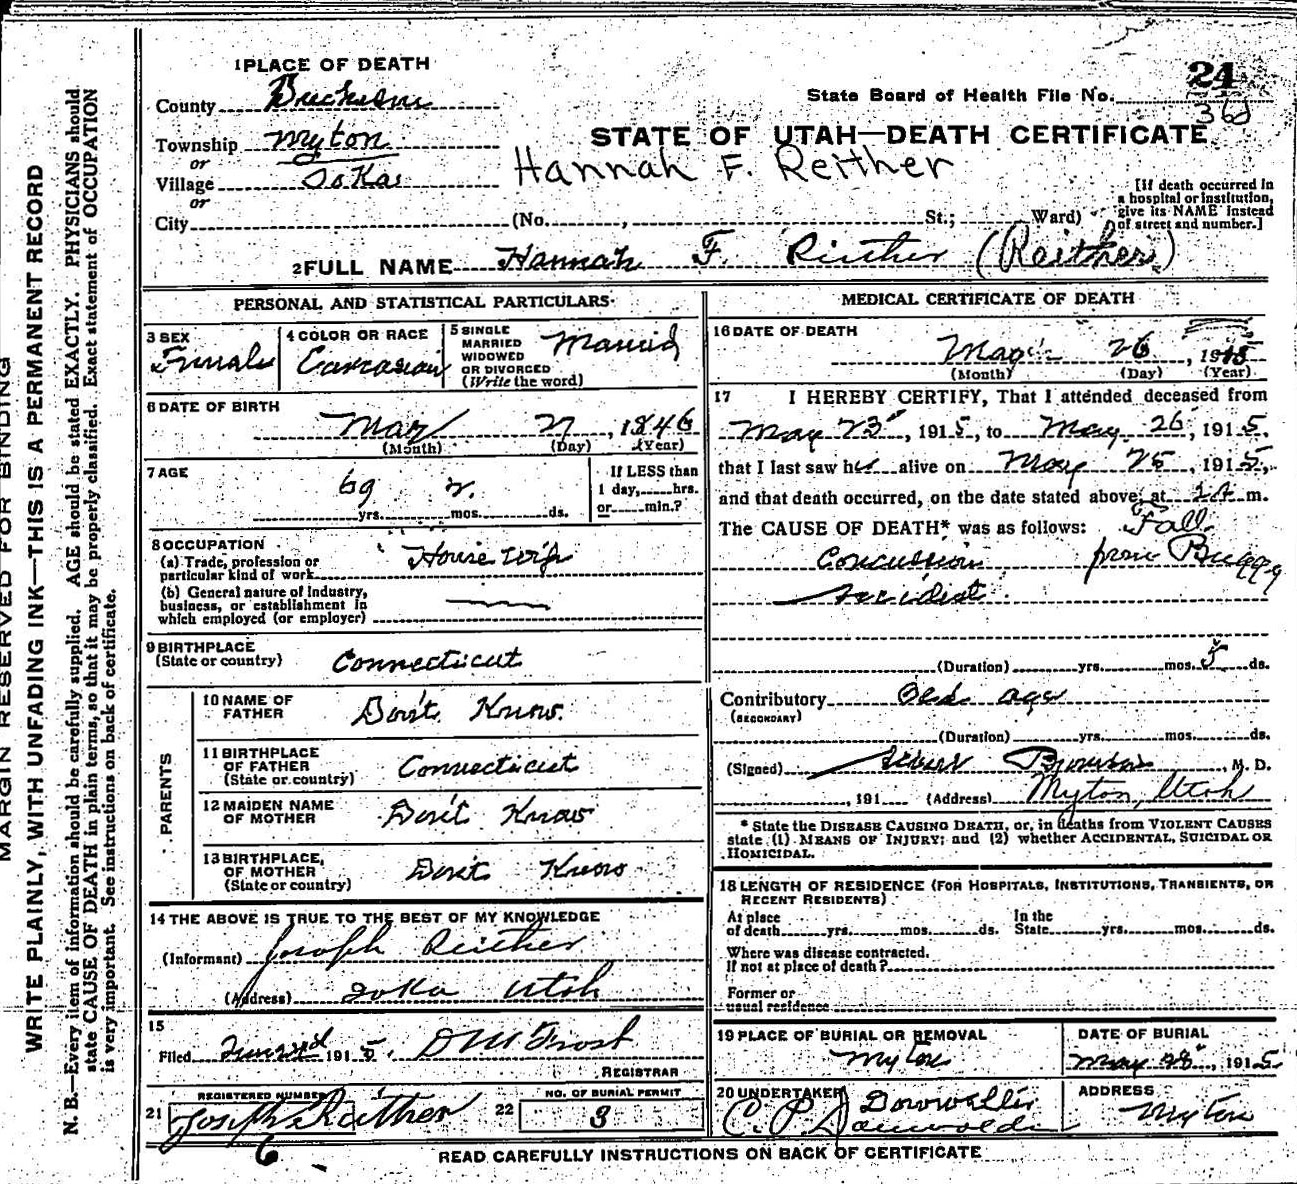 MARGIN RESERVED FOR BINDING
WRITE PLAINLY, WITH UNFADING INK—THIS IS A PERMANENT RECORD
N. B.—Every item of information should be carefully supplied. AGE should be stated EXACTLY. PHYSICIANS should
state CAUSE OF DEATH in plain terms, so that it may be properly classified. Exact statement of OCCUPATION
is very important. See instructions on back of certificate.
1 PLACE OF DEATH
County
Township Myton
or
Village
or
City
State Board of Health File No. 24
STATE OF UTAH—DEATH CERTIFICATE
Hannah F. Reither
[If death occurred in
a hospital or institution,
give its NAME instead
of street and number.]
(No. , St.; Ward)
2 FULL NAME Hannah F. Reither (Reither)
PERSONAL AND STATISTICAL PARTICULARS
3 SEX
Female
4 COLOR OR RACE
Caucasian
5 SINGLE
MARRIED
WIDOWED
OR DIVORCED
(Write the word)
Married
6 DATE OF BIRTH
May 27, 1846
(Month) (Day) (Year)
7 AGE
69 yrs. mos. ds.
If LESS than
1 day, hrs.
or min.?
8 OCCUPATION
(a) Trade, profession or
particular kind of work House wife
(b) General nature of industry,
business, or establishment in
which employed (or employer)
9 BIRTHPLACE
(State or country) Connecticut
PARENTS
10 NAME OF
FATHER Don't Know.
11 BIRTHPLACE
OF FATHER
(State or country) Connecticut
12 MAIDEN NAME
OF MOTHER Don't Know
13 BIRTHPLACE
OF MOTHER
(State or country) Don't Know
14 THE ABOVE IS TRUE TO THE BEST OF MY KNOWLEDGE
(Informant) Joseph Reither
(Address) Ioka Utah
15
Filed 1915. Frost
REGISTRAR
REGISTERED NUMBER
21 Joseph Reither
6
22 NO. OF BURIAL PERMIT
3
MEDICAL CERTIFICATE OF DEATH
16 DATE OF DEATH
May 26, 1915
(Month) (Day) (Year)
17 I HEREBY CERTIFY, That I attended deceased from
May 23, 1915, to May 26, 1915,
that I last saw her alive on May 25, 1915,
and that death occurred, on the date stated above, at m.
The CAUSE OF DEATH* was as follows: Fall
Concussion from Buggy
Accident
(Duration) yrs. mos. 5 ds.
Contributory Old age
(SECONDARY)
(Duration) yrs. mos. ds.
(Signed) , M. D.
, 191 (Address) Myton, Utah
* State the DISEASE CAUSING DEATH, or, in deaths from VIOLENT CAUSES
state (1) MEANS OF INJURY; and (2) whether ACCIDENTAL, SUICIDAL OR
HOMICIDAL.
18 LENGTH OF RESIDENCE (FOR HOSPITALS, INSTITUTIONS, TRANSIENTS, OR
RECENT RESIDENTS)
At place
of death yrs. mos. ds.
In the
State yrs. mos. ds.
Where was disease contracted.
If not at place of death?
Former or
usual residence
19 PLACE OF BURIAL OR REMOVAL
Myton
DATE OF BURIAL
May 28, 1915
20 UNDERTAKER
C. P.
ADDRESS
Myton
READ CAREFULLY INSTRUCTIONS ON BACK OF CERTIFICATE